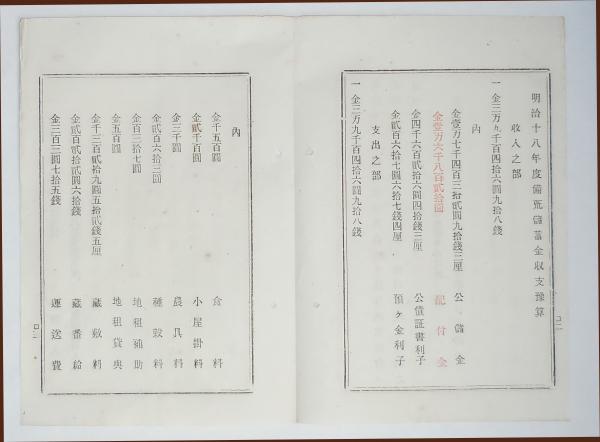 明治十八年度備荒儲蓄金収支豫算
収入之部
一金三万九千百四拾六圓九拾八錢
内
金壹万七千四百三拾貳圓九拾錢三厘 公儲金
金壹万六千八百貳拾圓 配付金
金四千六百貳拾六圓四拾錢三厘 公債証書利子
金貳百六拾七圓六拾七錢四厘 預ヶ金利子
支出之部
一金三万九千百四拾六圓九拾八錢
内
金千五百圓 食料
金貳千百圓 小屋掛料
金三千圓 農具料
金貳百六拾三圓 種穀料
金百三拾七圓 地租補助
金五百圓 地租貸與
金千三百貳拾九圓五拾貳錢五厘 藏敷料
金貳百貳拾貳圓六拾錢 藏番給
金三百三圓七拾五錢 運送費